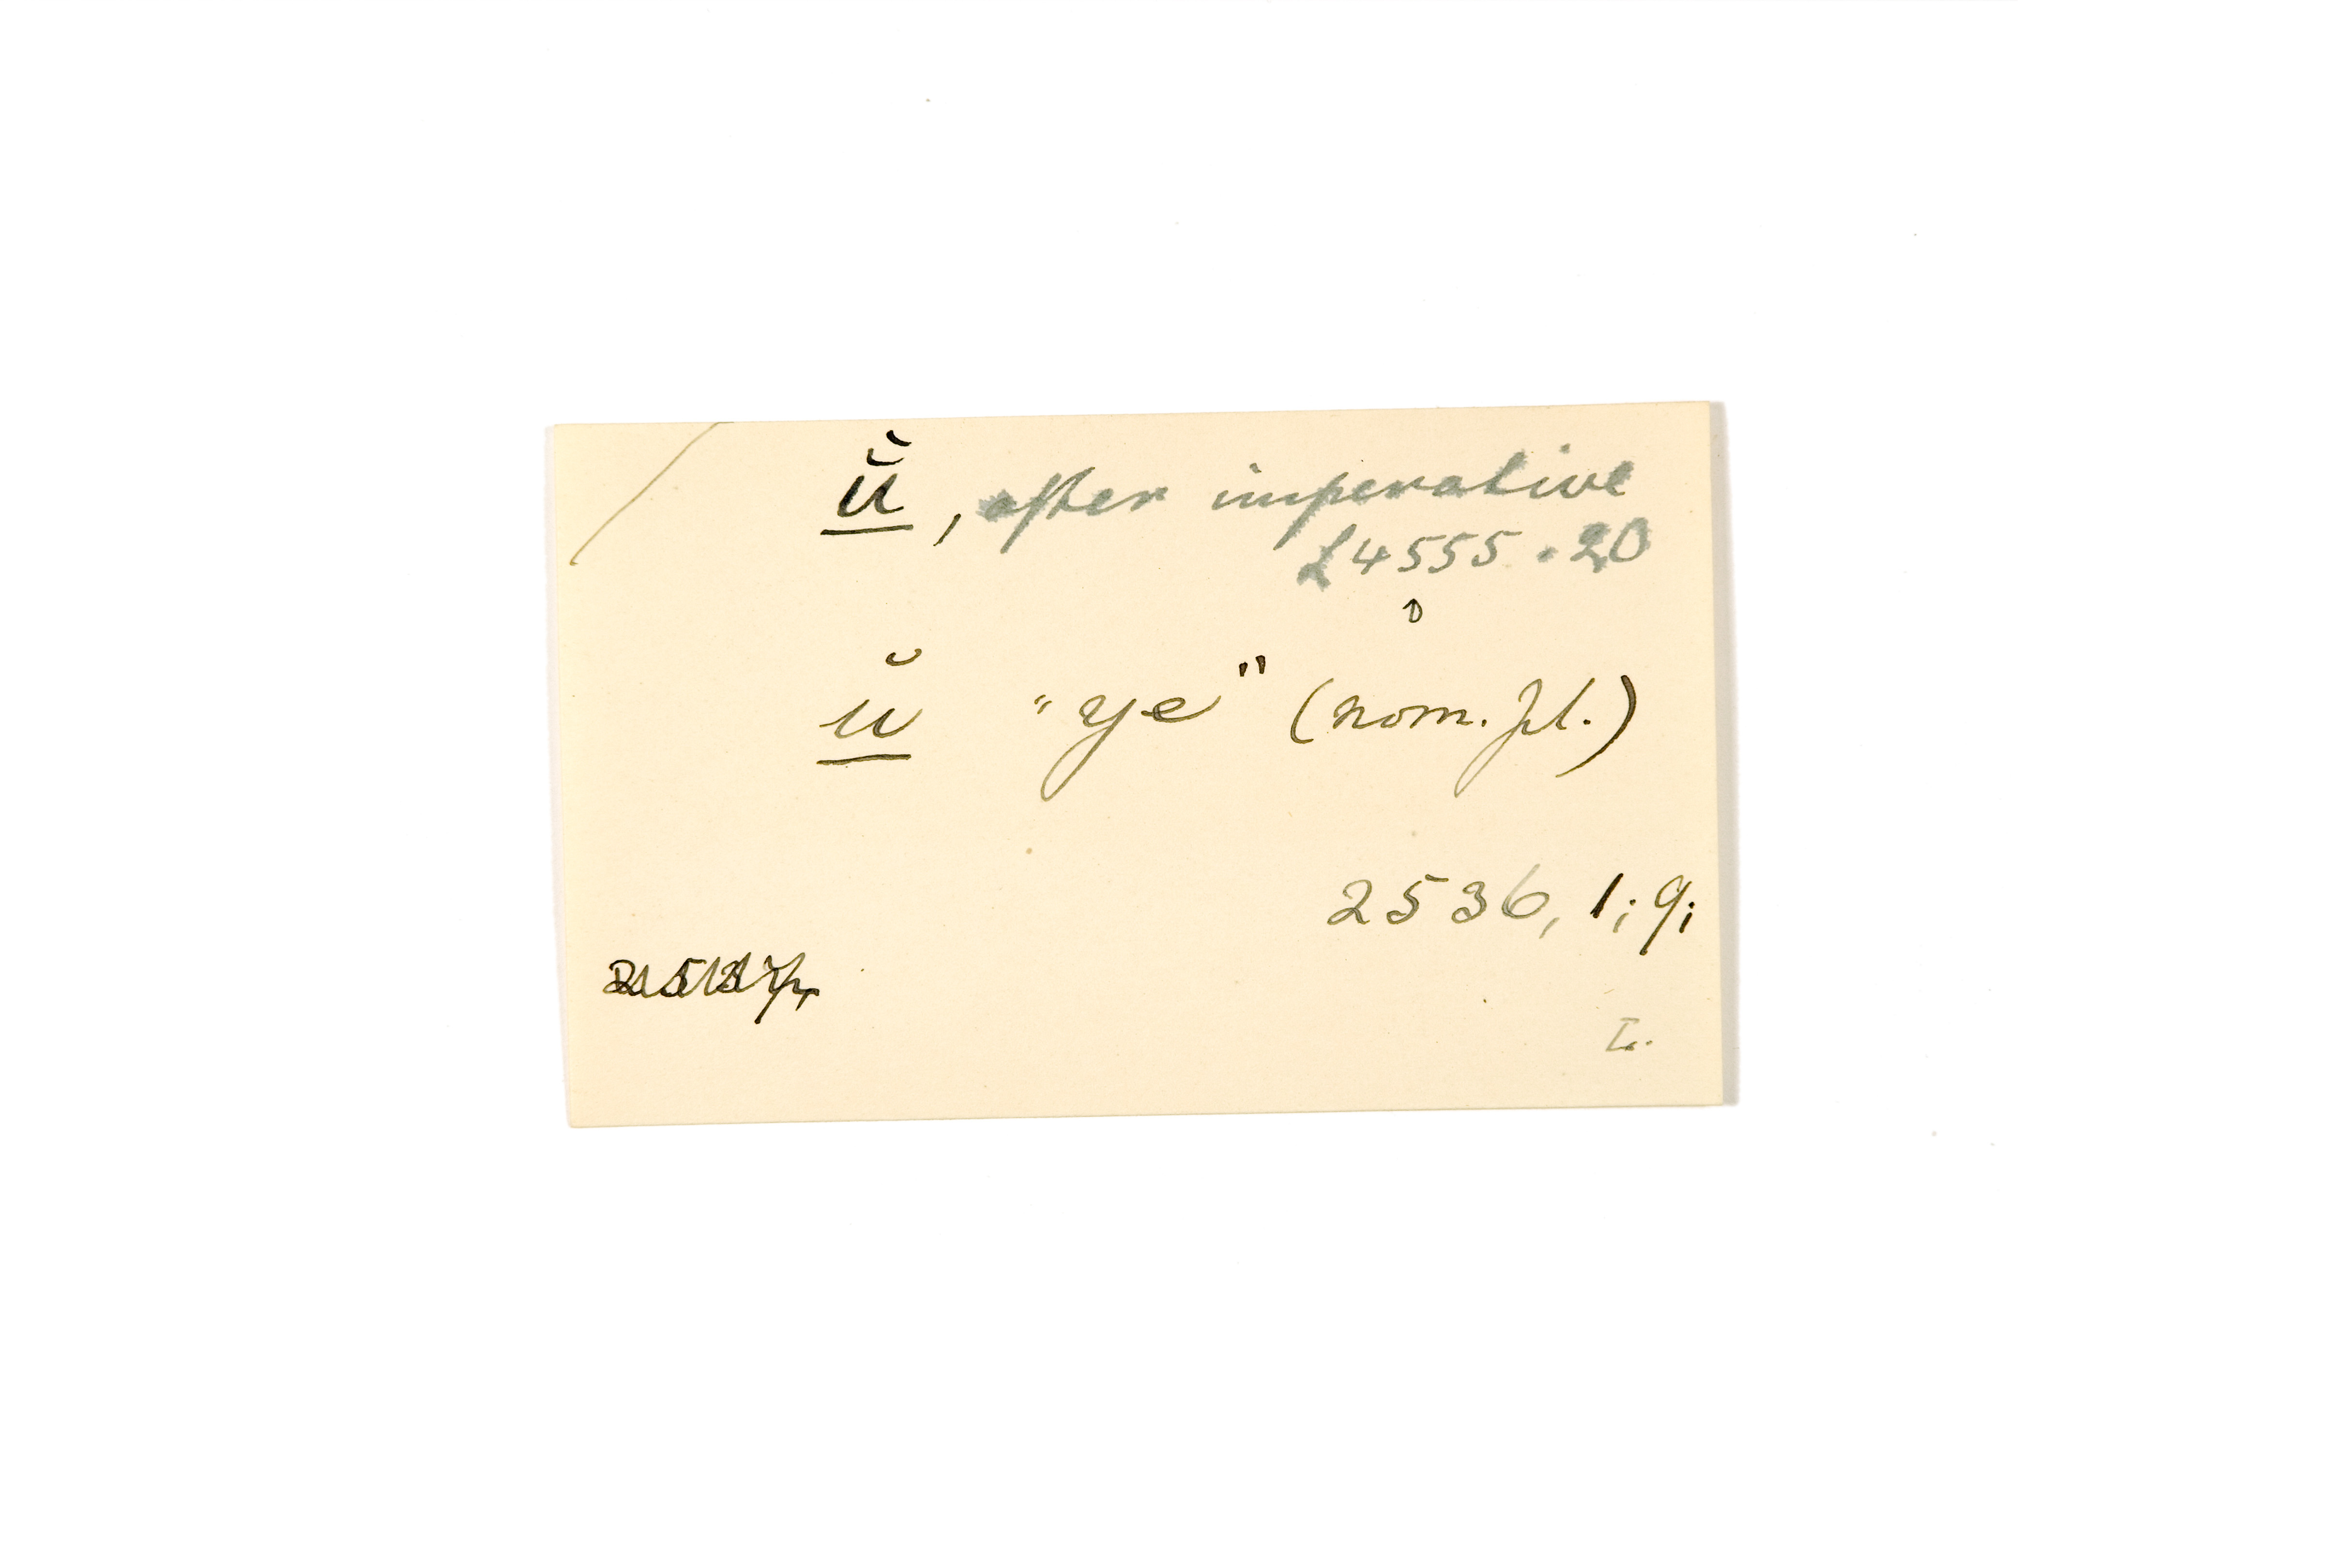 ŭ, after imperative
L4555.20
ŭ "ye" (nom. pl.)
2536, 1; 9;
L.